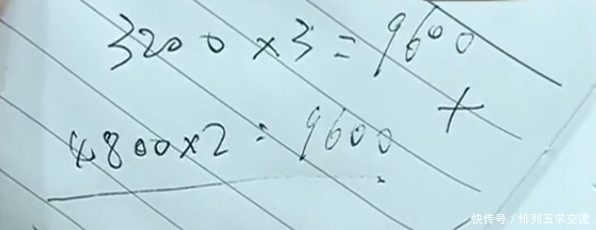 3200×3=9600
+
4800×2=9600
快传号/排列五求交流